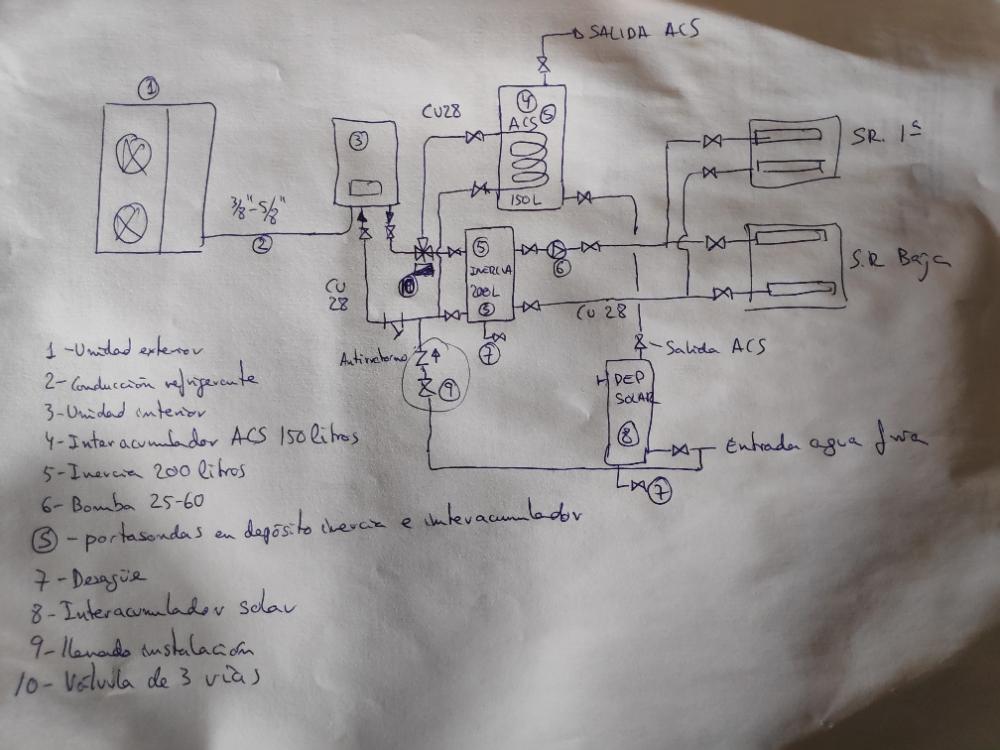 SALIDA ACS
1
CU28
4
ACS S
150L
3
SR. 1ª
3/8"-5/8"
2
5
INERCIA
200L
S
6
S.R Baja
10
CU
28
CU 28
Antirretorno
7
9
Salida ACS
DEP
SOLAR
8
Entrada agua fria
7
1 - Unidad exterior
2 - Conducción refrigerante
3 - Unidad interior
4 - Interacumulador ACS 150 litros
5 - Inercia 200 litros
6 - Bomba 25-60
S - portasondas en depósito inercia e interacumulador
7 - Desagüe
8 - Interacumulador solar
9 - llenado instalación
10 - Válvula de 3 vías